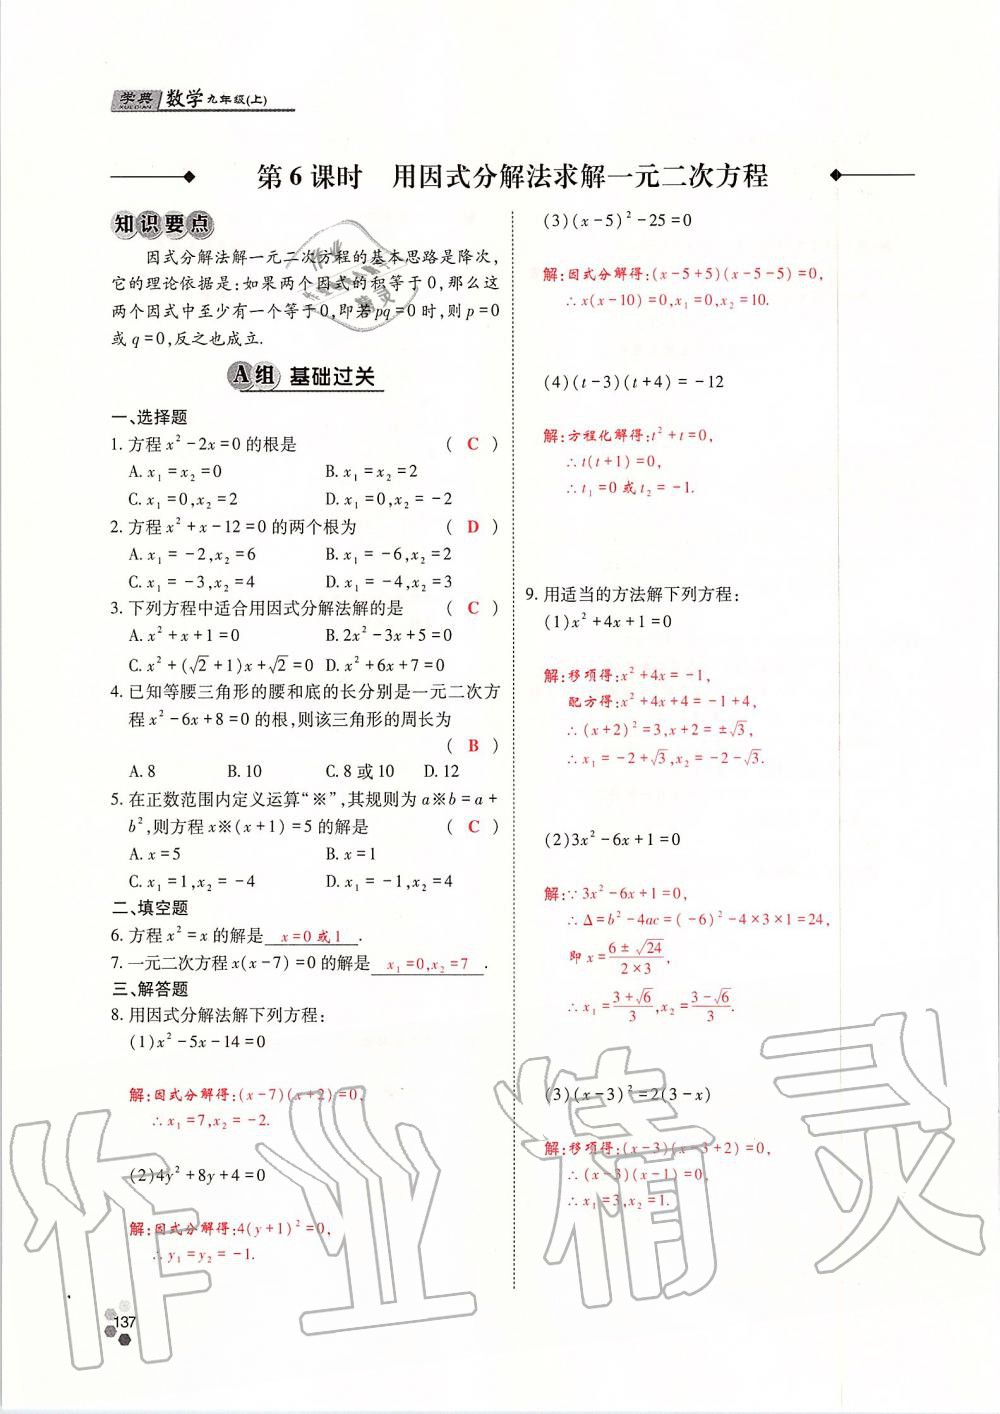 学典 数学九年级(上)
XUE DIAN
第6课时 用因式分解法求解一元二次方程
知识要点
因式分解法解一元二次方程的基本思路是降次,
它的理论依据是:如果两个因式的积等于0,那么这
两个因式中至少有一个等于0,即若pq=0时,则p=0
或q=0,反之也成立.
A组 基础过关
一、选择题
1. 方程x²-2x=0的根是 ( C )
A. x₁=x₂=0 B. x₁=x₂=2
C. x₁=0,x₂=2 D. x₁=0,x₂=-2
2. 方程x²+x-12=0的两个根为 ( D )
A. x₁=-2,x₂=6 B. x₁=-6,x₂=2
C. x₁=-3,x₂=4 D. x₁=-4,x₂=3
3. 下列方程中适合用因式分解法解的是 ( C )
A. x²+x+1=0 B. 2x²-3x+5=0
C. x²+(√2+1)x+√2=0 D. x²+6x+7=0
4. 已知等腰三角形的腰和底的长分别是一元二次方
程x²-6x+8=0的根,则该三角形的周长为
( B )
A. 8 B. 10 C. 8或10 D. 12
5. 在正数范围内定义运算“※”,其规则为a※b=a+
b²,则方程x※(x+1)=5的解是 ( C )
A. x=5 B. x=1
C. x₁=1,x₂=-4 D. x₁=-1,x₂=4
二、填空题
6. 方程x²=x的解是 x=0或1 .
7. 一元二次方程x(x-7)=0的解是 x₁=0,x₂=7 .
三、解答题
8. 用因式分解法解下列方程:
(1)x²-5x-14=0
解:因式分解得:(x-7)(x+2)=0,
∴x₁=7,x₂=-2.
(2)4y²+8y+4=0
解:因式分解得:4(y+1)²=0,
∴y₁=y₂=-1.
137
(3)(x-5)²-25=0
解:因式分解得:(x-5+5)(x-5-5)=0,
∴x(x-10)=0,x₁=0,x₂=10.
(4)(t-3)(t+4)=-12
解:方程化解得:t²+t=0,
∴t(t+1)=0,
∴t₁=0或t₂=-1.
9. 用适当的方法解下列方程:
(1)x²+4x+1=0
解:移项得:x²+4x=-1,
配方得:x²+4x+4=-1+4,
∴(x+2)²=3,x+2=±√3,
∴x₁=-2+√3,x₂=-2-√3.
(2)3x²-6x+1=0
解:∵3x²-6x+1=0,
∴Δ=b²-4ac=(-6)²-4×3×1=24,
即x=(6±√24)/(2×3),
∴x₁=(3+√6)/3,x₂=(3-√6)/3.
(3)(x-3)²=2(3-x)
解:移项得:(x-3)(x-3+2)=0,
∴(x-3)(x-1)=0,
∴x₁=3,x₂=1.
作业精灵